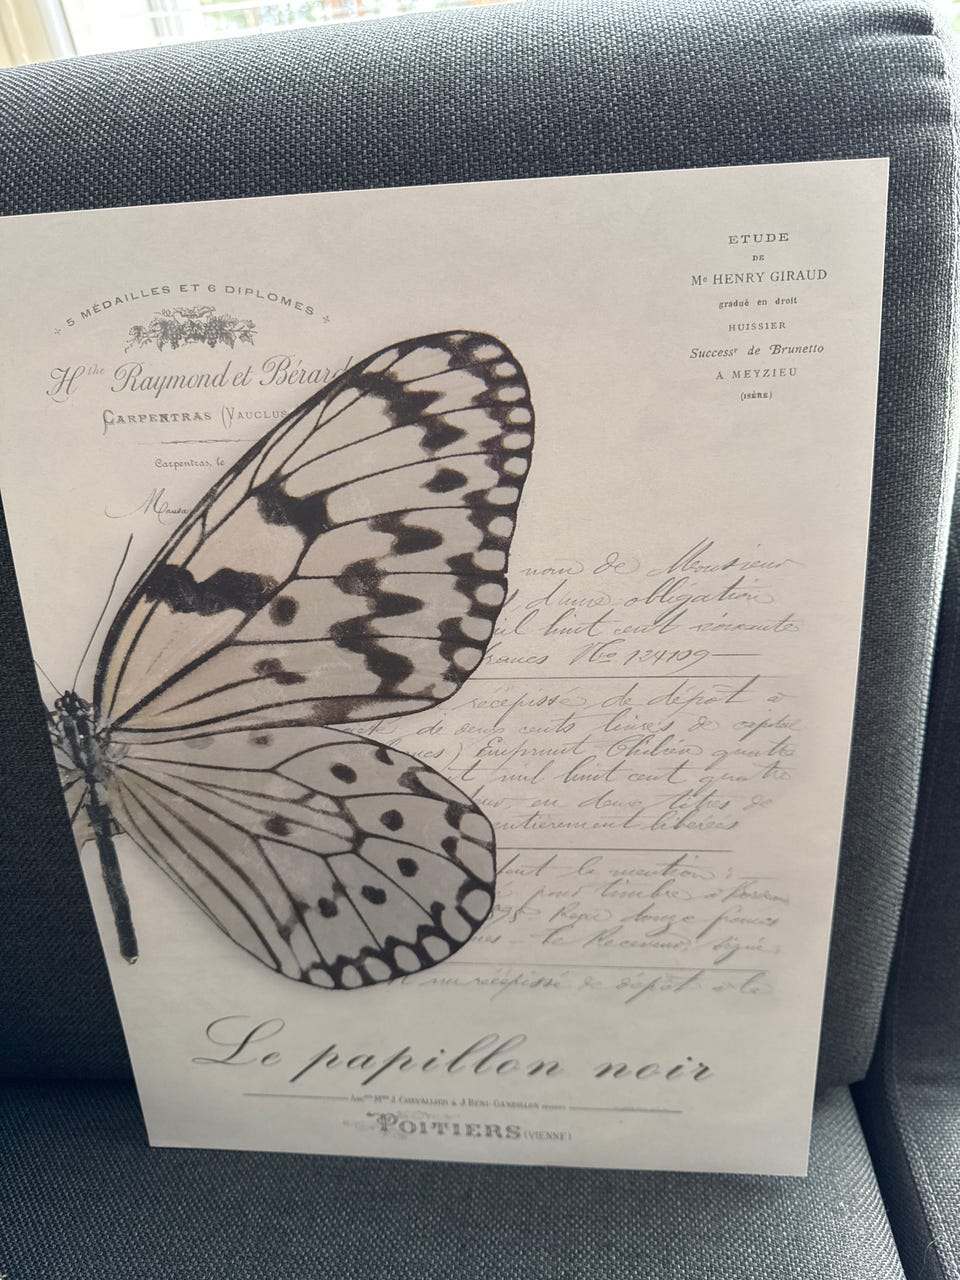 5 MÉDAILLES ET 6 DIPLOMES
Hthe Raymond et Bérard
CARPENTRAS (VAUCLUS
Carpentras, le
ETUDE
DE
Me HENRY GIRAUD
gradué en droit
HUISSIER
Successr de Brunetto
A MEYZIEU
(ISÈRE)
nom de Monsieur
d'une obligation
il huit cent soixante
francs No 124109
récépissé de dépôt à
de deux cents livres de capital
Emprunt Chilien quatre
mil huit cent quatre
en deux titres de
entièrement libérés
la mention :
pour timbre à
Reçu douze francs
Le Receveur signé
un récépissé de dépôt à la
Le papillon noir
Ancne Mon J. CHEVALLIER & J. BÉNI-GANDILLON
POITIERS (VIENNE)